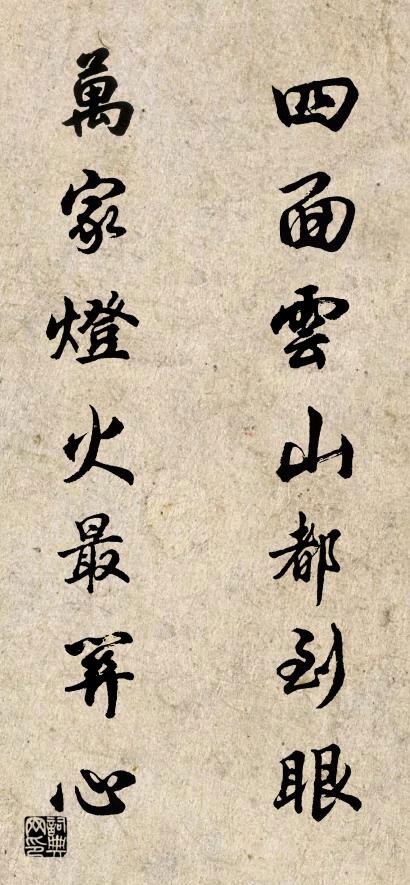 四面雲山都到眼
萬家燈火最關心
詞典网印